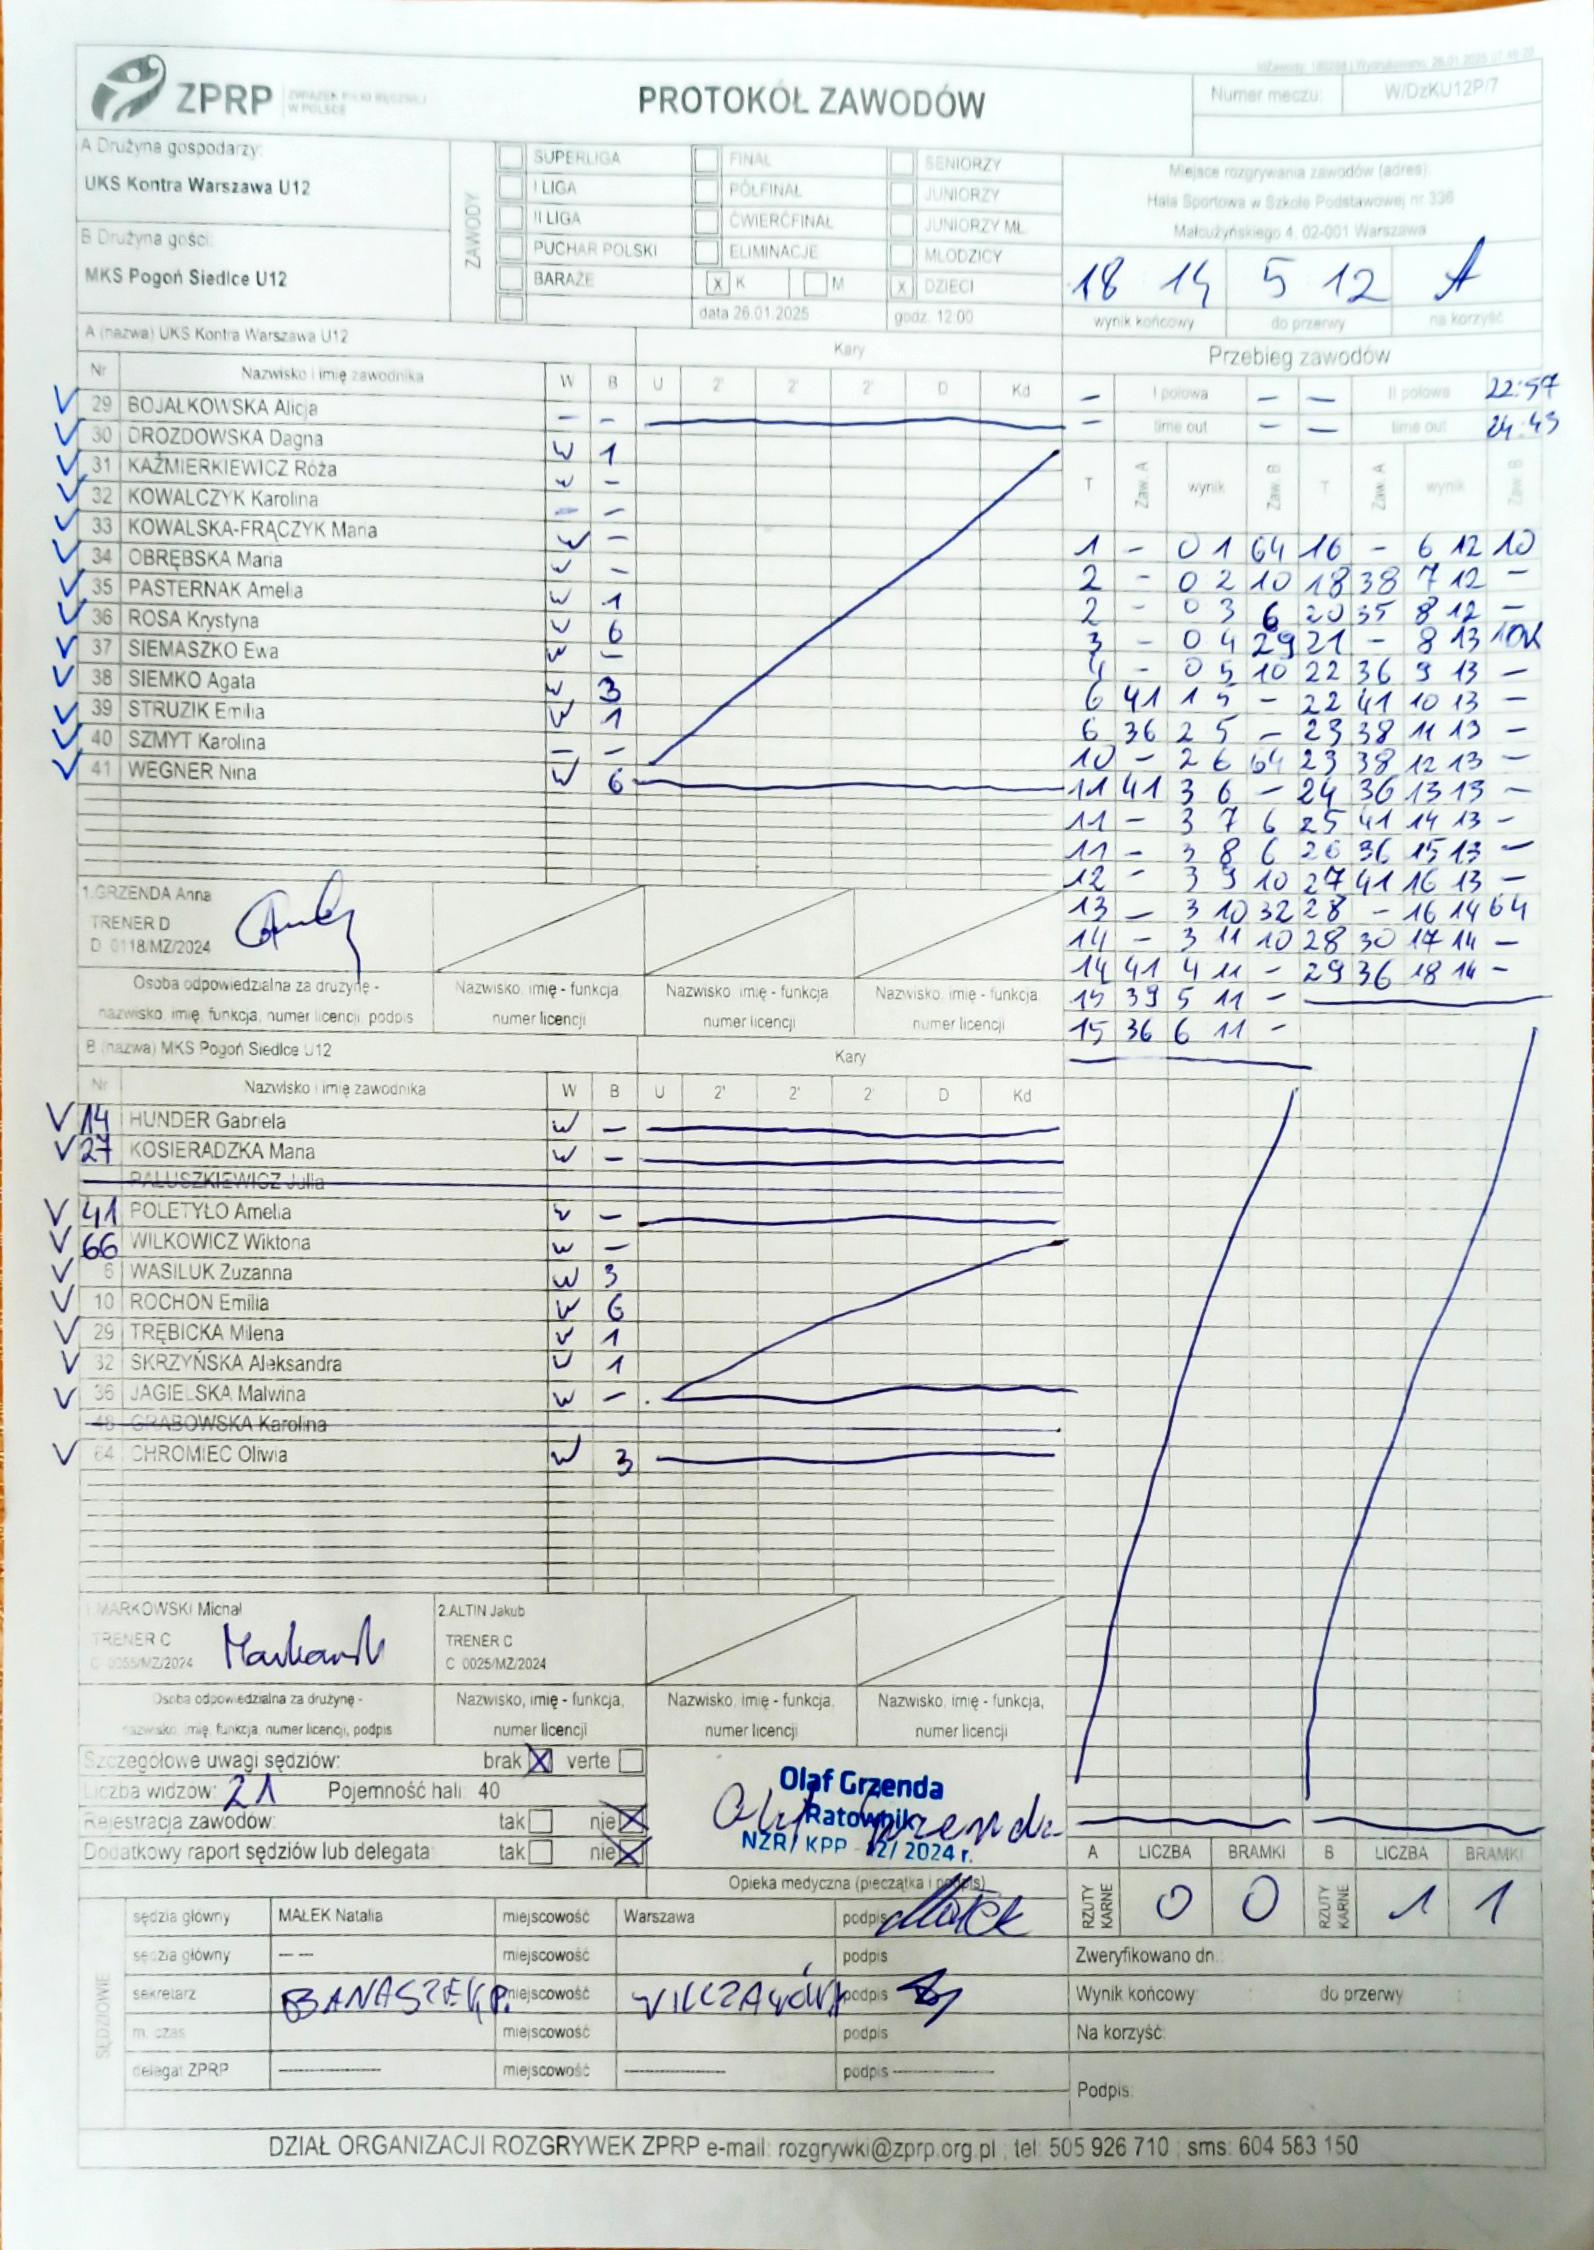 IdZawody: 180288 | Wydrukowano: 26.01.2025 07:48:20
ZPRP ZWIĄZEK PIŁKI RĘCZNEJ W POLSCE
PROTOKÓŁ ZAWODÓW
Numer meczu: W/DzKU12P/7
A Drużyna gospodarzy:
UKS Kontra Warszawa U12
B Drużyna gości:
MKS Pogoń Siedlce U12
ZAWODY
SUPERLIGA FINAŁ SENIORZY
I LIGA PÓŁFINAŁ JUNIORZY
II LIGA ĆWIERĆFINAŁ JUNIORZY MŁ.
PUCHAR POLSKI ELIMINACJE MŁODZICY
BARAŻE x K M x DZIECI
data 26.01.2025 godz. 12:00
Miejsce rozgrywania zawodów (adres):
Hala Sportowa w Szkole Podstawowej nr 336
Małcużyńskiego 4, 02-001 Warszawa
18 14 5 12 A
wynik końcowy do przerwy na korzyść
A (nazwa) UKS Kontra Warszawa U12
Kary
Nr Nazwisko i imię zawodnika W B U 2' 2' 2' D Kd
V 29 BOJAŁKOWSKA Alicja - -
V 30 DROZDOWSKA Dagna W 1
V 31 KAŹMIERKIEWICZ Róża W -
V 32 KOWALCZYK Karolina - -
V 33 KOWALSKA-FRĄCZYK Maria W -
V 34 OBRĘBSKA Maria W -
V 35 PASTERNAK Amelia W 1
V 36 ROSA Krystyna W 6
V 37 SIEMASZKO Ewa W -
V 38 SIEMKO Agata W 3
V 39 STRUZIK Emilia W 1
V 40 SZMYT Karolina - -
V 41 WEGNER Nina W 6
1.GRZENDA Anna
TRENER D
D 0118/MZ/2024
Osoba odpowiedzialna za drużynę - nazwisko, imię, funkcja, numer licencji, podpis
Nazwisko, imię - funkcja, numer licencji
Nazwisko, imię - funkcja, numer licencji
Nazwisko, imię - funkcja, numer licencji
Przebieg zawodów
- I połowa - - II połowa 22:57
- time out - - time out 24:43
T Zaw. A wynik Zaw. B T Zaw. A wynik Zaw. B
1 - 0 1 64 16 - 6 12 10
2 - 0 2 10 18 38 7 12 -
2 - 0 3 6 20 35 8 12 -
3 - 0 4 29 21 - 8 13 10K
4 - 0 5 10 22 36 9 13 -
6 41 1 5 - 22 41 10 13 -
6 36 2 5 - 23 38 11 13 -
10 - 2 6 64 23 38 12 13 -
11 41 3 6 - 24 36 13 13 -
11 - 3 7 6 25 41 14 13 -
11 - 3 8 6 26 36 15 13 -
12 - 3 9 10 27 41 16 13 -
13 - 3 10 32 28 - 16 14 64
14 - 3 11 10 28 30 17 14 -
14 41 4 11 - 29 36 18 14 -
15 39 5 11 -
15 36 6 11 -
B (nazwa) MKS Pogoń Siedlce U12
Kary
Nr Nazwisko i imię zawodnika W B U 2' 2' 2' D Kd
V 14 HUNDER Gabriela W -
V 27 KOSIERADZKA Maria W -
PALUSZKIEWICZ Julia
V 41 POLETYŁO Amelia W -
V 66 WILKOWICZ Wiktoria W -
V 6 WASILUK Zuzanna W 3
V 10 ROCHON Emilia W 6
V 29 TRĘBICKA Milena W 1
V 32 SKRZYŃSKA Aleksandra W 1
V 36 JAGIELSKA Malwina W -
48 GRABOWSKA Karolina
V 64 CHROMIEC Oliwia W 3
1.MARKOWSKI Michał
TRENER C
C 0055/MZ/2024
2.ALTIN Jakub
TRENER C
C 0025/MZ/2024
Osoba odpowiedzialna za drużynę - nazwisko, imię, funkcja, numer licencji, podpis
Nazwisko, imię - funkcja, numer licencji
Nazwisko, imię - funkcja, numer licencji
Nazwisko, imię - funkcja, numer licencji
Szczegółowe uwagi sędziów: brak X verte
Liczba widzów: 21 Pojemność hali: 40
Rejestracja zawodów: tak nie X
Dodatkowy raport sędziów lub delegata: tak nie X
Olaf Grzenda
Ratownik
NZR/ KPP - 12/ 2024 r.
Opieka medyczna (pieczątka i podpis)
A LICZBA BRAMKI B LICZBA BRAMKI
RZUTY KARNE 0 0 RZUTY KARNE 1 1
SĘDZIOWIE
sędzia główny MAŁEK Natalia miejscowość Warszawa podpis Małek
sędzia główny -- miejscowość podpis
sekretarz BANASZEK P. miejscowość WILCZAGÓRA podpis
m. czas miejscowość podpis
delegat ZPRP miejscowość podpis
Zweryfikowano dn.:
Wynik końcowy: : do przerwy :
Na korzyść:
Podpis:
DZIAŁ ORGANIZACJI ROZGRYWEK ZPRP e-mail: rozgrywki@zprp.org.pl ; tel: 505 926 710 ; sms: 604 583 150